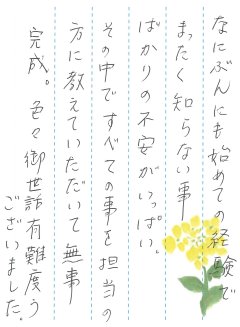 なにぶんにも始めての経験で
まったく知らない事
ばかりの不安がいっぱい、
その中ですべての事を担当の
方に教えていただいて無事
完成。色々御世話有難度う
ございました。